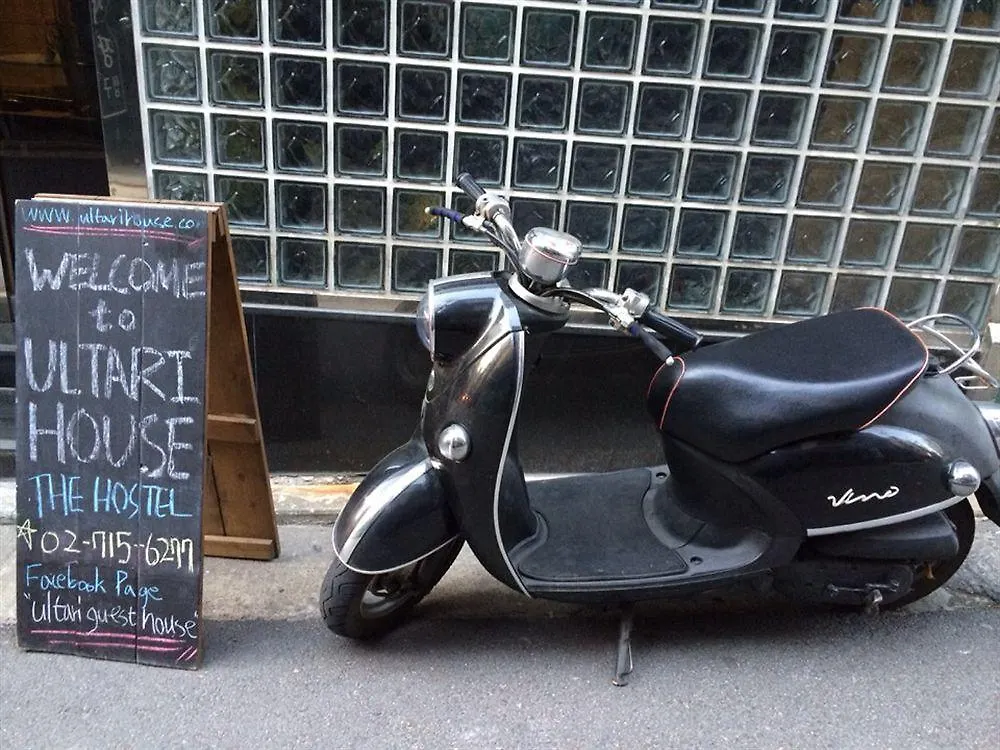 www.ultarihouse.co
WELCOME
to
ULTARI
HOUSE
THE HOSTEL
☆02-715-6277
Facebook Page
"ultari guest house"
Vino